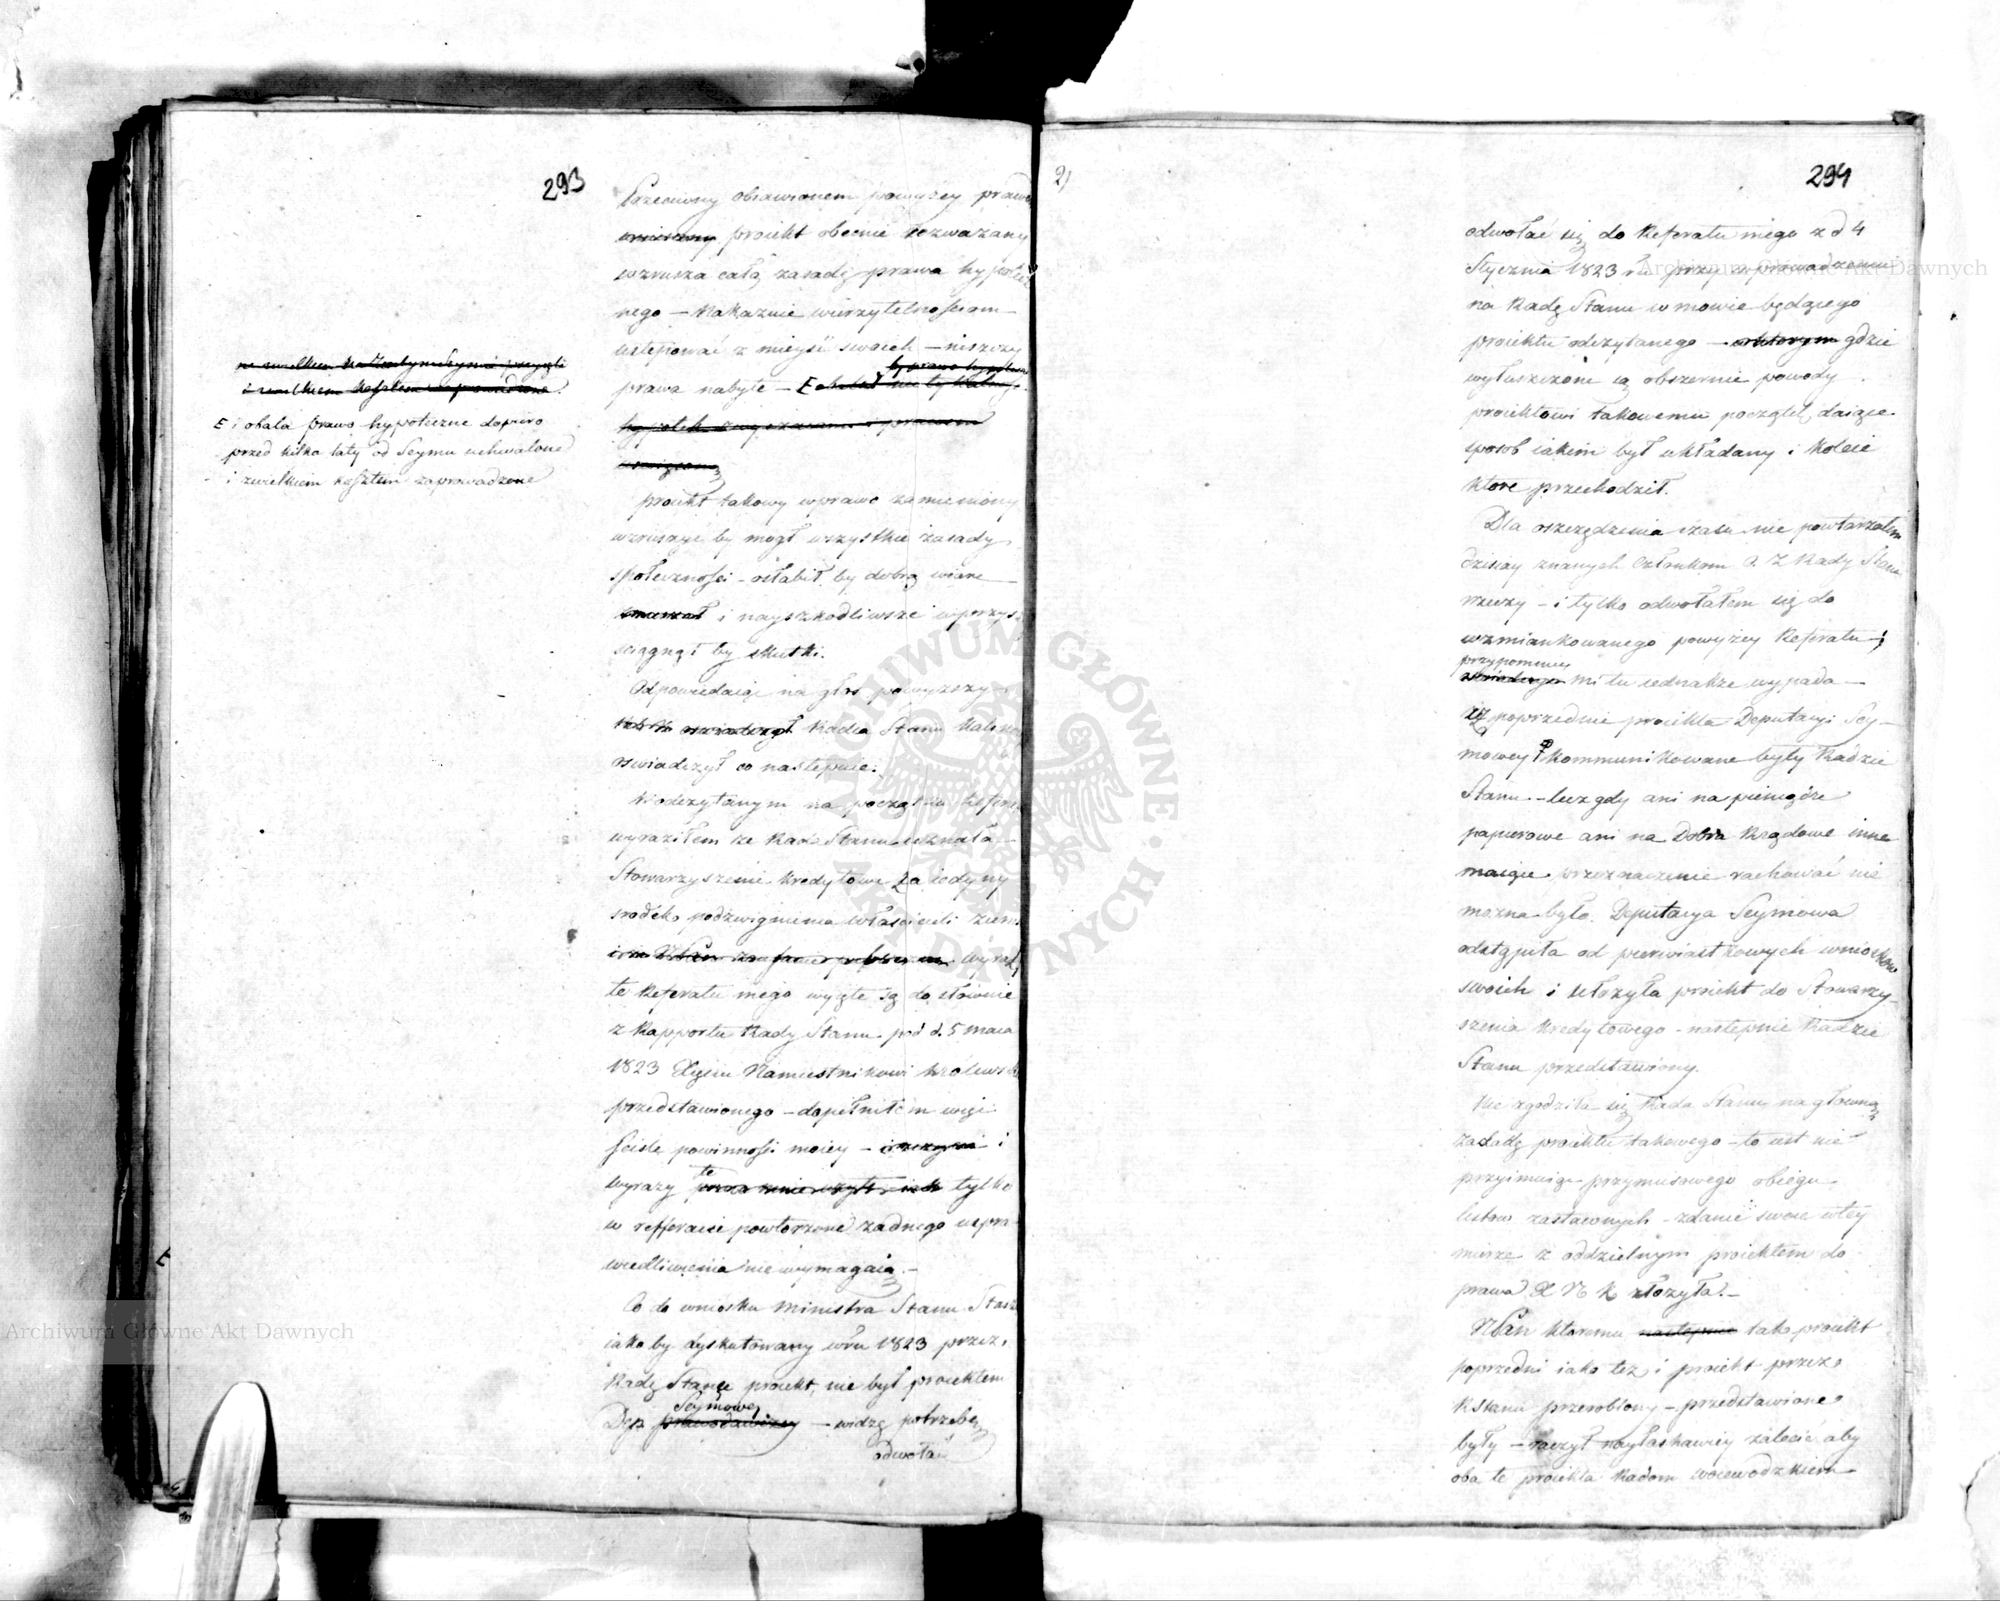 293
Przeciwny obiawionem powyżey prawu
proiekt obecnie rozważany
wzrusza całą zasadę prawa hypotecz
nego — Nakazuie wierzytelnościom
ustępować z mieysc swoich — niszczy
prawa nabyte — E
E i obala prawo hypoteczne dopiero
przed kilka laty od Seymu uchwalone
i zwielkiem kosztem zaprowadzone
proiekt takowy wprawo zamieniony
wzruszyć by mogł wszystkie zasady
społeczności — osłabił by dobrą wiarę
i nayszkodliwsze wprzysz
sciągnął by skutki.
Odpowiedaiąc na głos powyższy
Radca Stanu
oswiadczył co następuie:
Wodczytanym na początku
wyraziłem że Rada Stanu uznała
Stowarzyszenie Kredytowe za iedyny
srodek podzwignienia właścicieli ziem
wyrazy
te Referatu mego wyięte są do słownie
z Rapportu Rady Stanu pod d. 5 maia
1823 Xięciu Namiestnikowi Królews
przedstawionego — dopełniłem więc
ściśle powinności moiey — i
wyrazy te tylko
w refferacie powtorzone żadnego uspra
wiedliwienia nie wymagaią. —
Co do wniosku Ministra Stanu Stasz
iako by dyskutowany wru 1823 przez
Radę Stanu proiekt, nie był proiektem
Dep Seymowey — widzę potrzebę
odwołać
2)
294
odwołać się do Referatu mego z d 4
Stycznia 1823 ru przy wprowadzeniu
na Radę Stanu w mowie będącego
proiektu odczytanego — gdzie
wyłuszczone są obszernie powody
proiektowi takowemu początek daiące
sposob iakim był układany i Koleie
ktore przechodził.
Dla oszczędzenia czasu nie powtarzałem
dzisiay znanych Członkom O. Z Rady Stanu
rzeczy — i tylko odwołałem się do
wzmiankowanego powyżey Referatu;
przypomniec mi tu iednakże wypada —
iż poprzednie proiekta Deputacyi Sey-
mowey kommunikowane były Radzie
Stanu — lecz gdy ani na pieniądze
papierowe ani na Dobra Rządowe inne
maiące przeznaczenie rachować nie
można było. Deputacya Seymowa
odstąpiła od pierwiastkowych wnioskow
swoich i ułożyła proiekt do Stowarzy-
szenia Kredytowego — następnie Radzie
Stanu przedstawiony.
Nie zgodziła się Rada Stanu na głowną
zasadę proiektu takowego — to iest nie
przyimuiąc przymusowego obiegu
listow zastawnych — zdanie swoie wtey
mierze z oddzielnym proiektem do
prawa X N K złożyła. —
NPan ktoremu tak proiekt
poprzedni iako też i proiekt przez
R Stanu przerobiony — przedstawione
były — raczył nayłaskawiey zalecić aby
oba te proiekta Radom woiewodzkiem
Archiwum Główne Akt Dawnych
Archiwum Główne Akt Dawnych
ARCHIWUM GŁÓWNE AKT DAWNYCH